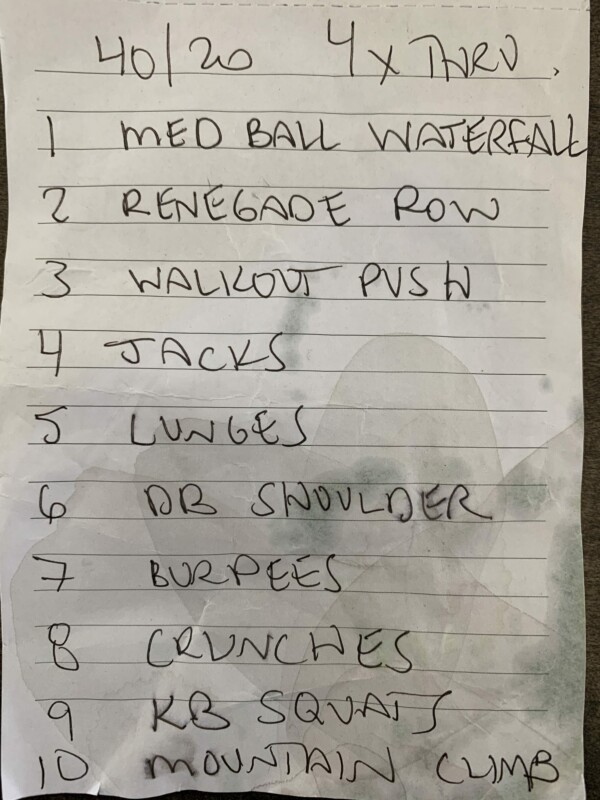 40/20 4x THRU.
1 MED BALL WATERFALL
2 RENEGADE ROW
3 WALKOUT PUSH
4 JACKS
5 LUNGES
6 DB SHOULDER
7 BURPEES
8 CRUNCHES
9 KB SQUATS
10 MOUNTAIN CLIMB